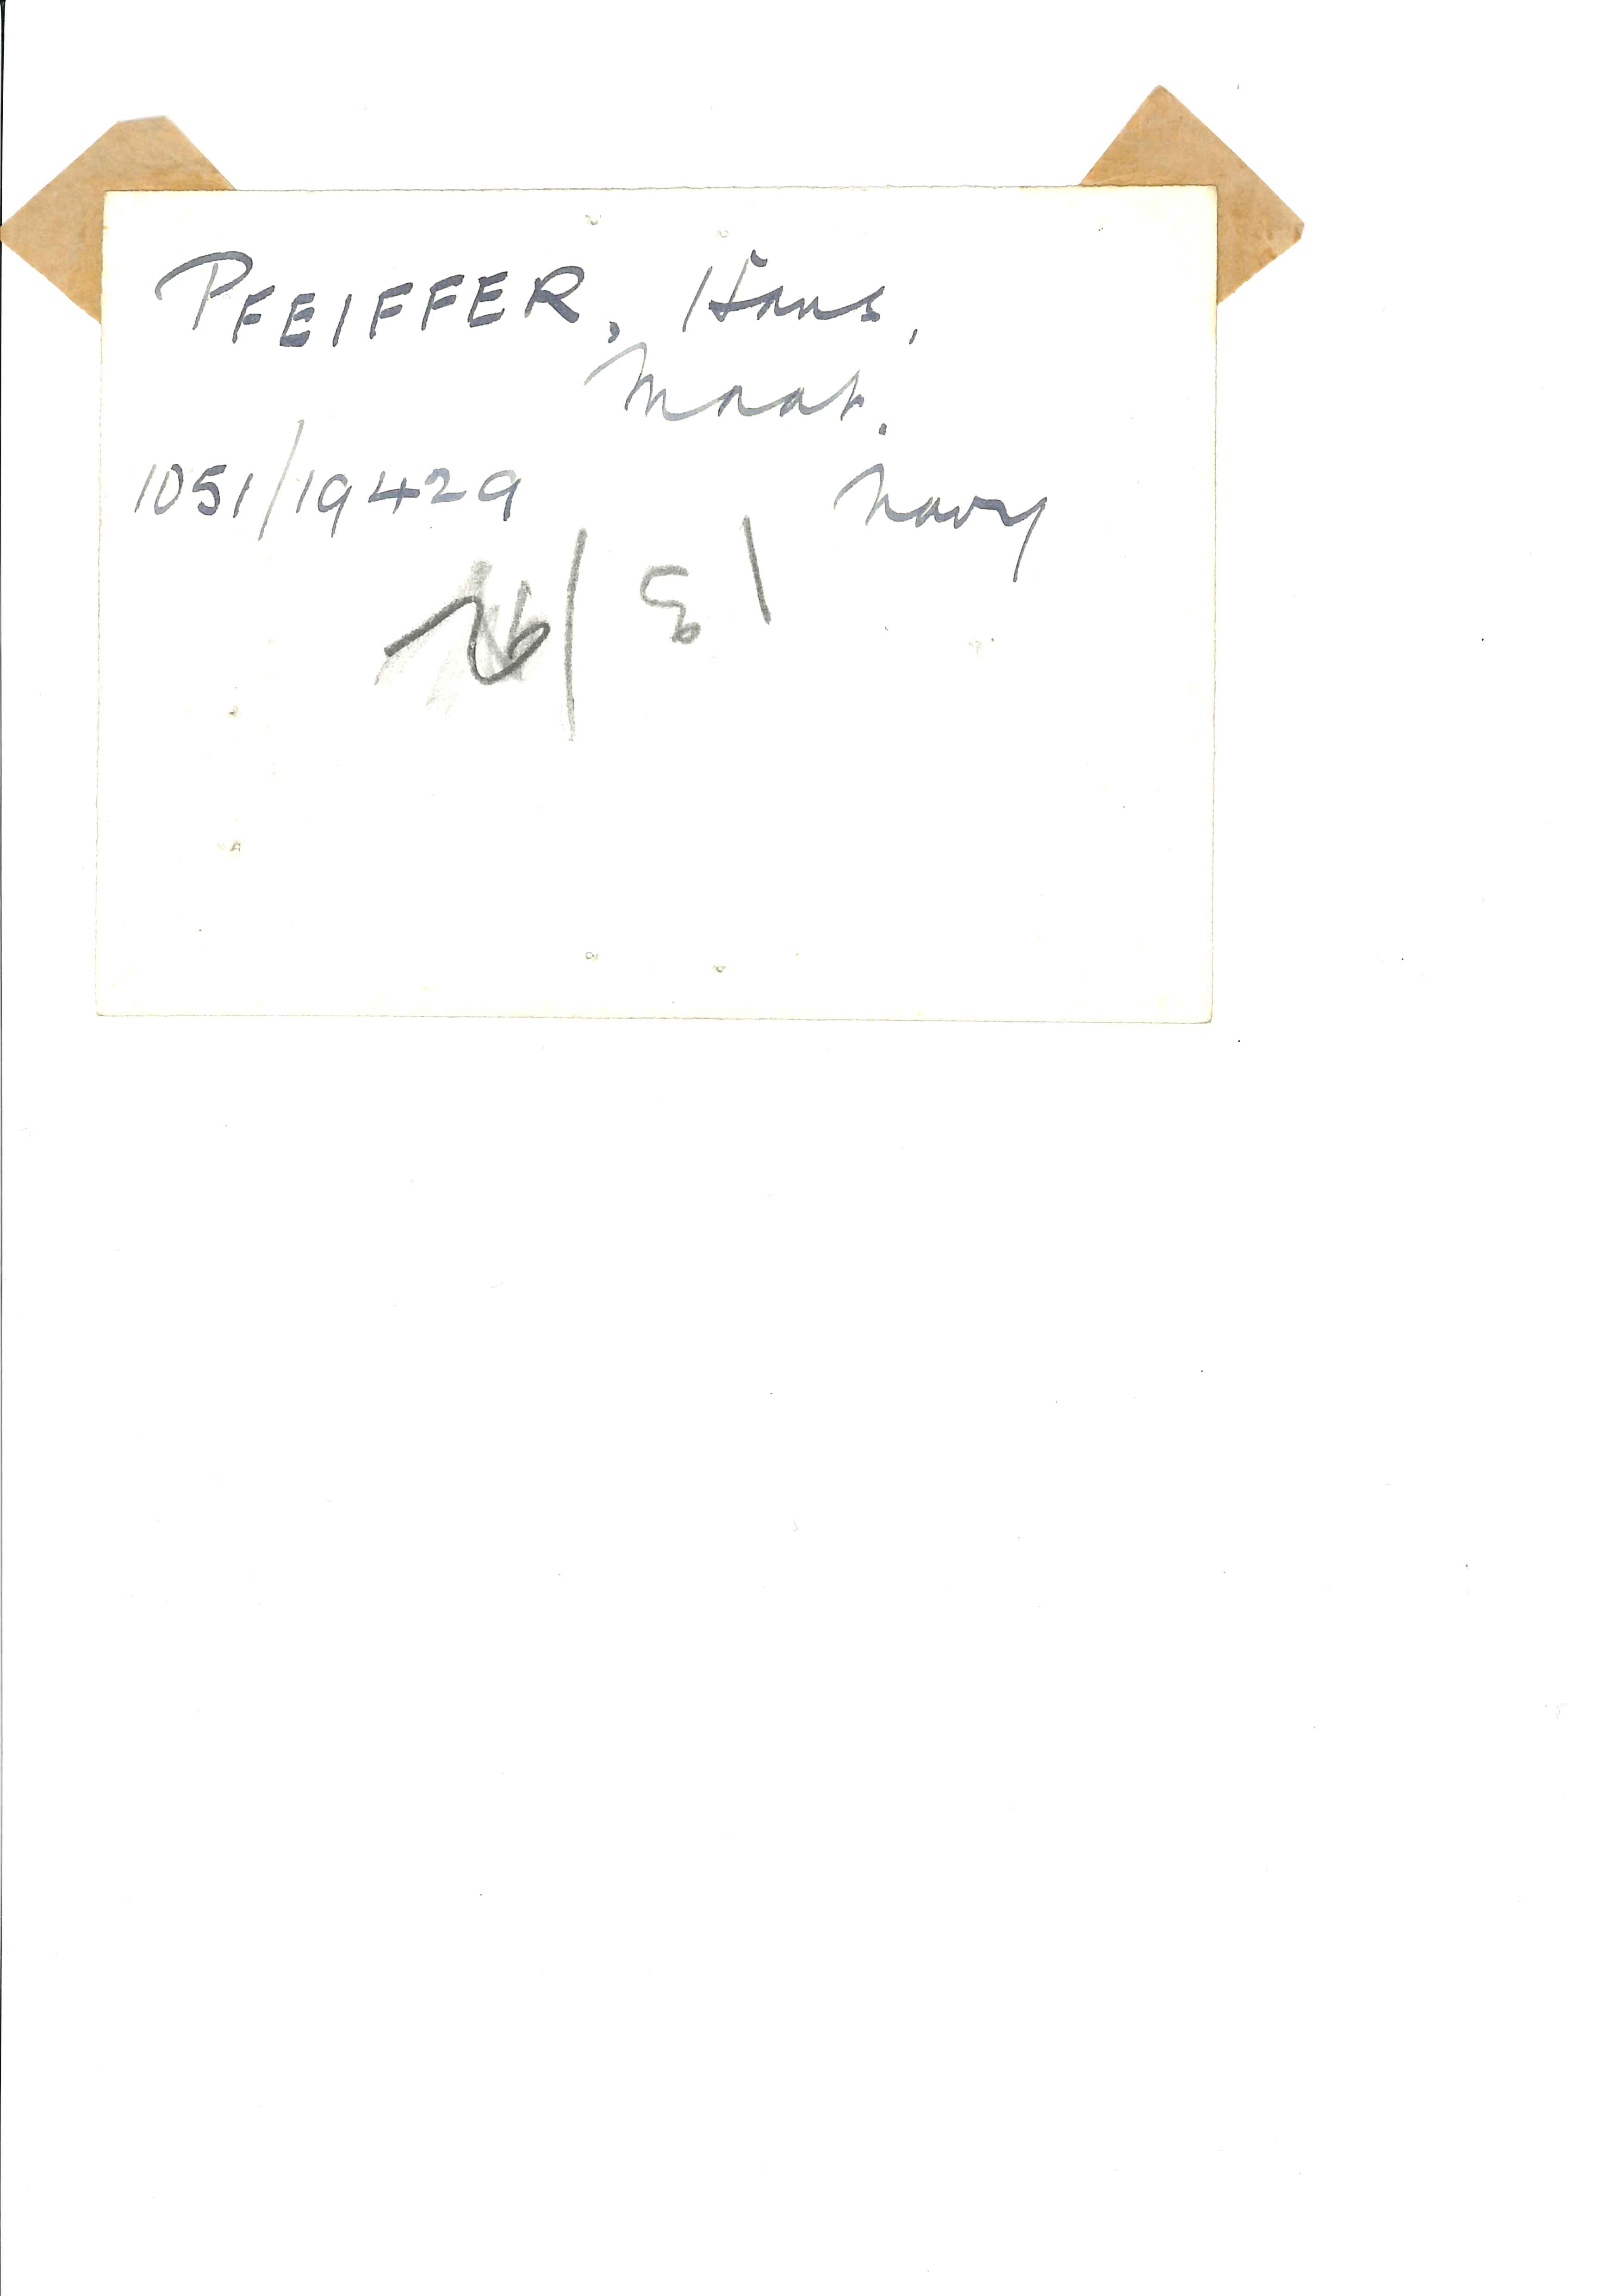 PFEIFFER, Hans,
Maat.
1051/19429 Navy